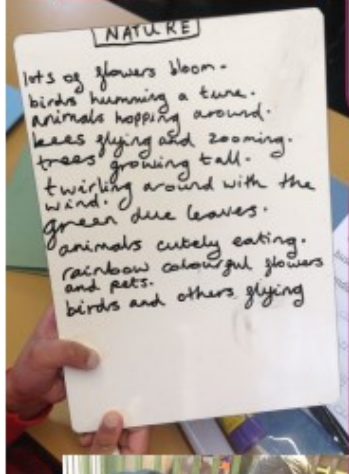 NATURE
lots of flowers bloom.
birds humming a tune.
animals hopping around.
bees flying and zooming.
trees growing tall.
twirling around with the
wind.
green due leaves.
animals cutely eating.
rainbow colourful flowers
and pets.
birds and others flying